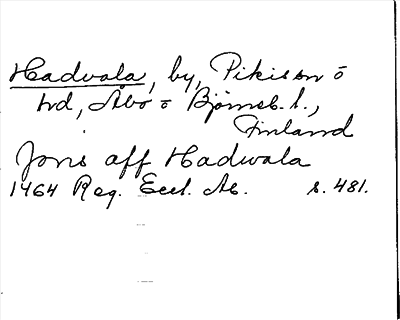 Hadvala, by, Pikis sn o
hd, Åbo o Björneb. l.,
Finland
Jons aff Hadwala
1464 Reg. Eccl. Ab. s. 481.